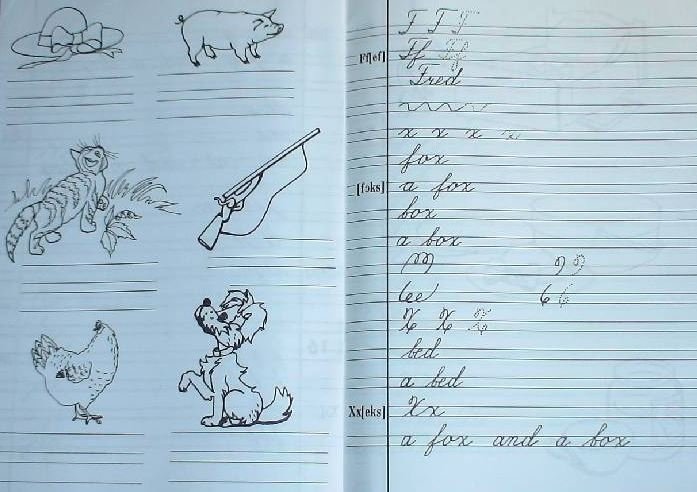 F F F
Ff[ef] Ff Ff
Fred
x x x x
fox
[fɔks] a fox
box
a box
X X X
bed
a bed
Xx[eks] Xx
a fox and a box